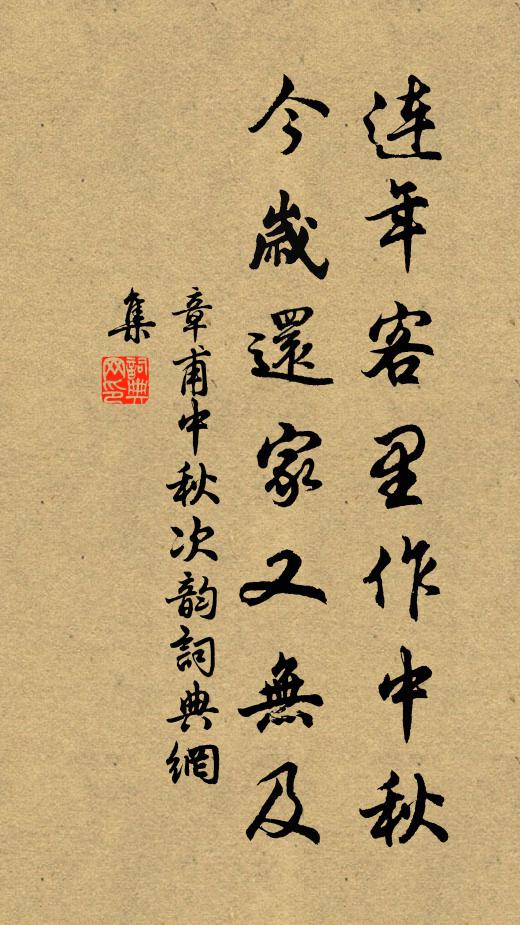 連年客里作中秋
今歲還家又無及
章甫中秋次韵詞典網
集
詞典
网印